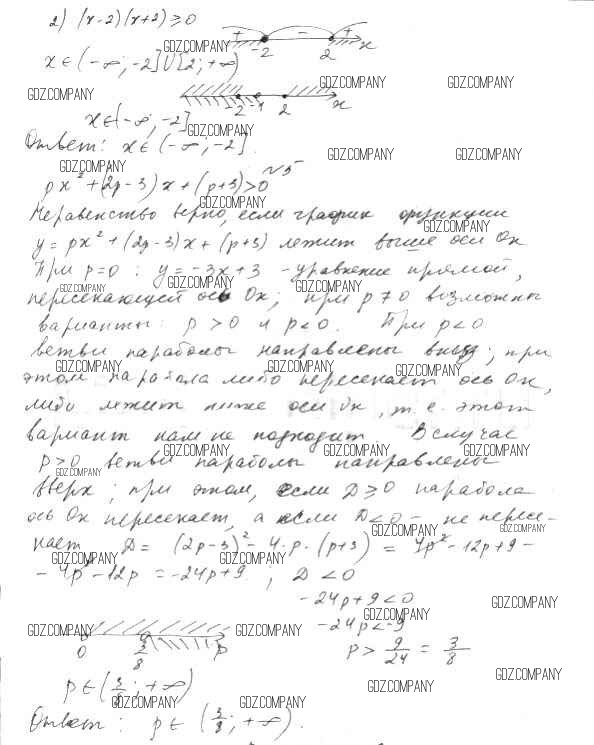 2) (x-2)(x+2) ≥ 0
+ - +
-2 2 x
GDZ.COMPANY
x ∈ (-∞; -2] ∪ [2; +∞)
GDZ.COMPANY GDZ.COMPANY GDZ.COMPANY
-2 -1 2 x
x ∈ (-∞; -2]
GDZ.COMPANY
Ответ: x ∈ (-∞; -2].
GDZ.COMPANY GDZ.COMPANY
GDZ.COMPANY
№5
px² + (2p-3)x + (p+3) > 0
GDZ.COMPANY
Неравенство верно, если график функции
GDZ.COMPANY
y = px² + (2p-3)x + (p+3) лежит выше оси Ox
При p=0 : y = -3x+3 - уравнение прямой,
GDZ.COMPANY GDZ.COMPANY GDZ.COMPANY
пересекающей ось Ox; при p ≠ 0 возможны
варианты: p > 0 и p < 0. При p < 0
ветви параболы направлены вниз; при
GDZ.COMPANY GDZ.COMPANY GDZ.COMPANY
этом парабола либо пересекает ось Ox,
либо лежит ниже оси Ox, т.е. этот
вариант нам не подходит В случае
GDZ.COMPANY GDZ.COMPANY GDZ.COMPANY
p > 0 ветви параболы направлены
GDZ.COMPANY
вверх; при этом, если D ≥ 0 парабола
ось Ox пересекает, а если D < 0 - не пересе-
GDZ.COMPANY GDZ.COMPANY
кает D = (2p-3)² - 4·p·(p+3) = 4p² - 12p + 9 -
GDZ.COMPANY GDZ.COMPANY
- 4p² - 12p = -24p + 9 ; D < 0
-24p + 9 < 0
GDZ.COMPANY
GDZ.COMPANY
-24p < -9
GDZ.COMPANY GDZ.COMPANY
0 3/8 p
p > 9/24 = 3/8
GDZ.COMPANY
p ∈ (3/8; +∞)
GDZ.COMPANY GDZ.COMPANY
Ответ: p ∈ (3/8; +∞).